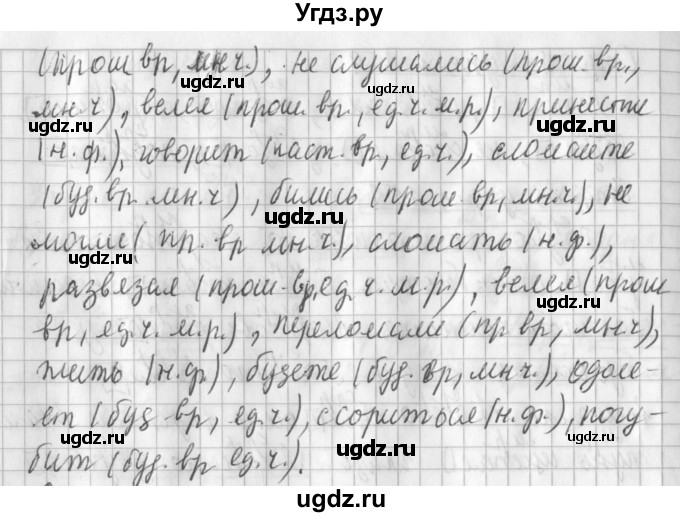 Угдз.ру
(прош вр, мн.ч.), не слушались (прош. вр.,
мн.ч), велел (прош. вр., ед.ч. м.р.), принести
(н.ф.), говорит (наст. вр., ед.ч.), сломайте
(буд. вр. мн.ч), бились (прош вр, мн.ч.), не
могли( пр. вр мн.ч.), сломать (н.ф.),
развязал (прош. вр, ед. ч. м.р.), велел (прош
вр, ед.ч. м.р.), переломали (пр вр, мн.ч),
жить (н.ф), будете (буд. вр, мн ч.), одоле-
ет (буд вр, ед.ч.), ссориться (н.ф.), погу-
бит (буд. вр ед.ч.).
ugdz.ru
ugdz.ru
ugdz.ru
ugdz.ru
ugdz.ru
ugdz.ru
ugdz.ru
ugdz.ru
ugdz.ru
ugdz.ru
ugdz.ru
ugdz.ru
ugdz.ru
ugdz.ru